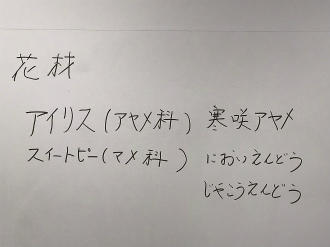 花材
アイリス(アヤメ科) 寒咲アヤメ
スイートピー(マメ科) においえんどう
じゃこうえんどう